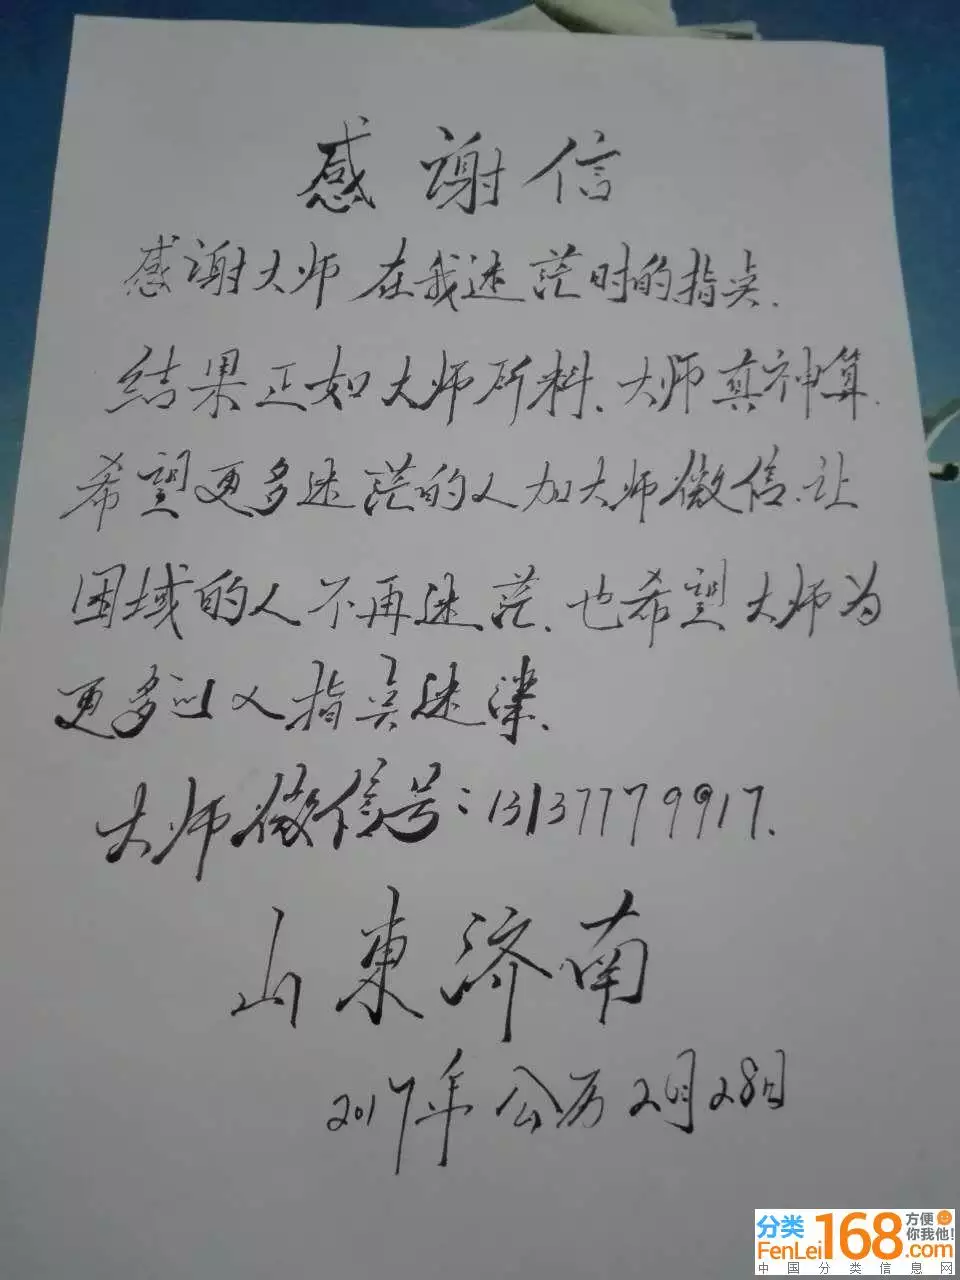 感谢信
感谢大师在我迷茫时的指点.
结果正如大师所料、大师真神算.
希望更多迷茫的人加大师微信、让
困域的人不再迷茫、也希望大师为
更多的人指点迷津、
大师微信号：13137779917.
山東济南
2017年公历2月28日
分类168方便你我他!
FenLei168.com
中国分类信息网